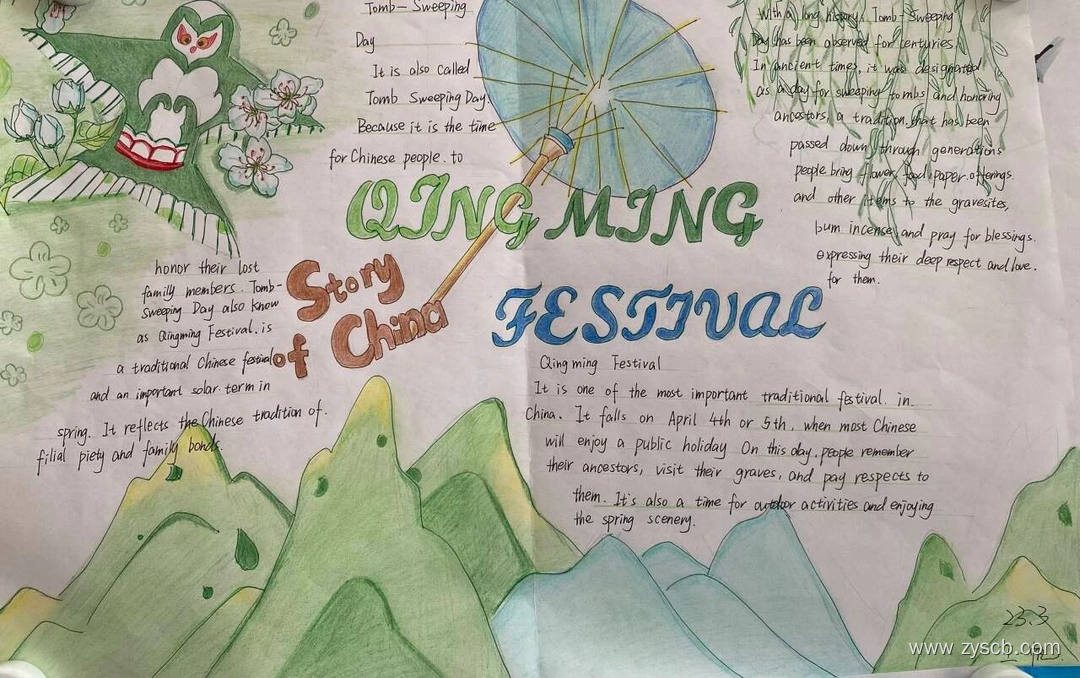 Tomb-Sweeping
Day
It is also called
Tomb Sweeping Day.
Because it is the time
for Chinese people. to
honor their lost
family members. Tomb-
Sweeping Day also know
as Qingming Festival. is
a traditional Chinese festival
and an important solar. term in
spring. It reflects the Chinese tradition of.
filial piety and family bonds.
QING MING
FESTIVAL
Story
of China
With a long history, Tomb-Sweeping
Day has been observed for centuries
In ancient times, it was designated
as a day for sweeping tombs and honoring
ancestors, a tradition that has been
passed down through generations
people bring flower, food, paper. offerings
and other items to the gravesites,
burn incense and pray for blessings.
expressing their deep respect and love.
for them.
Qing ming Festival
It is one of the most important traditional festival. in.
China. It falls on April 4th or 5th, when most Chinese
will enjoy a public holiday On this day, people remember
their ancestors, visit their graves, and pay respects to
them. It's also a time for outdoor activities and enjoying
the spring scenery.
23.3
www.zyscb.com